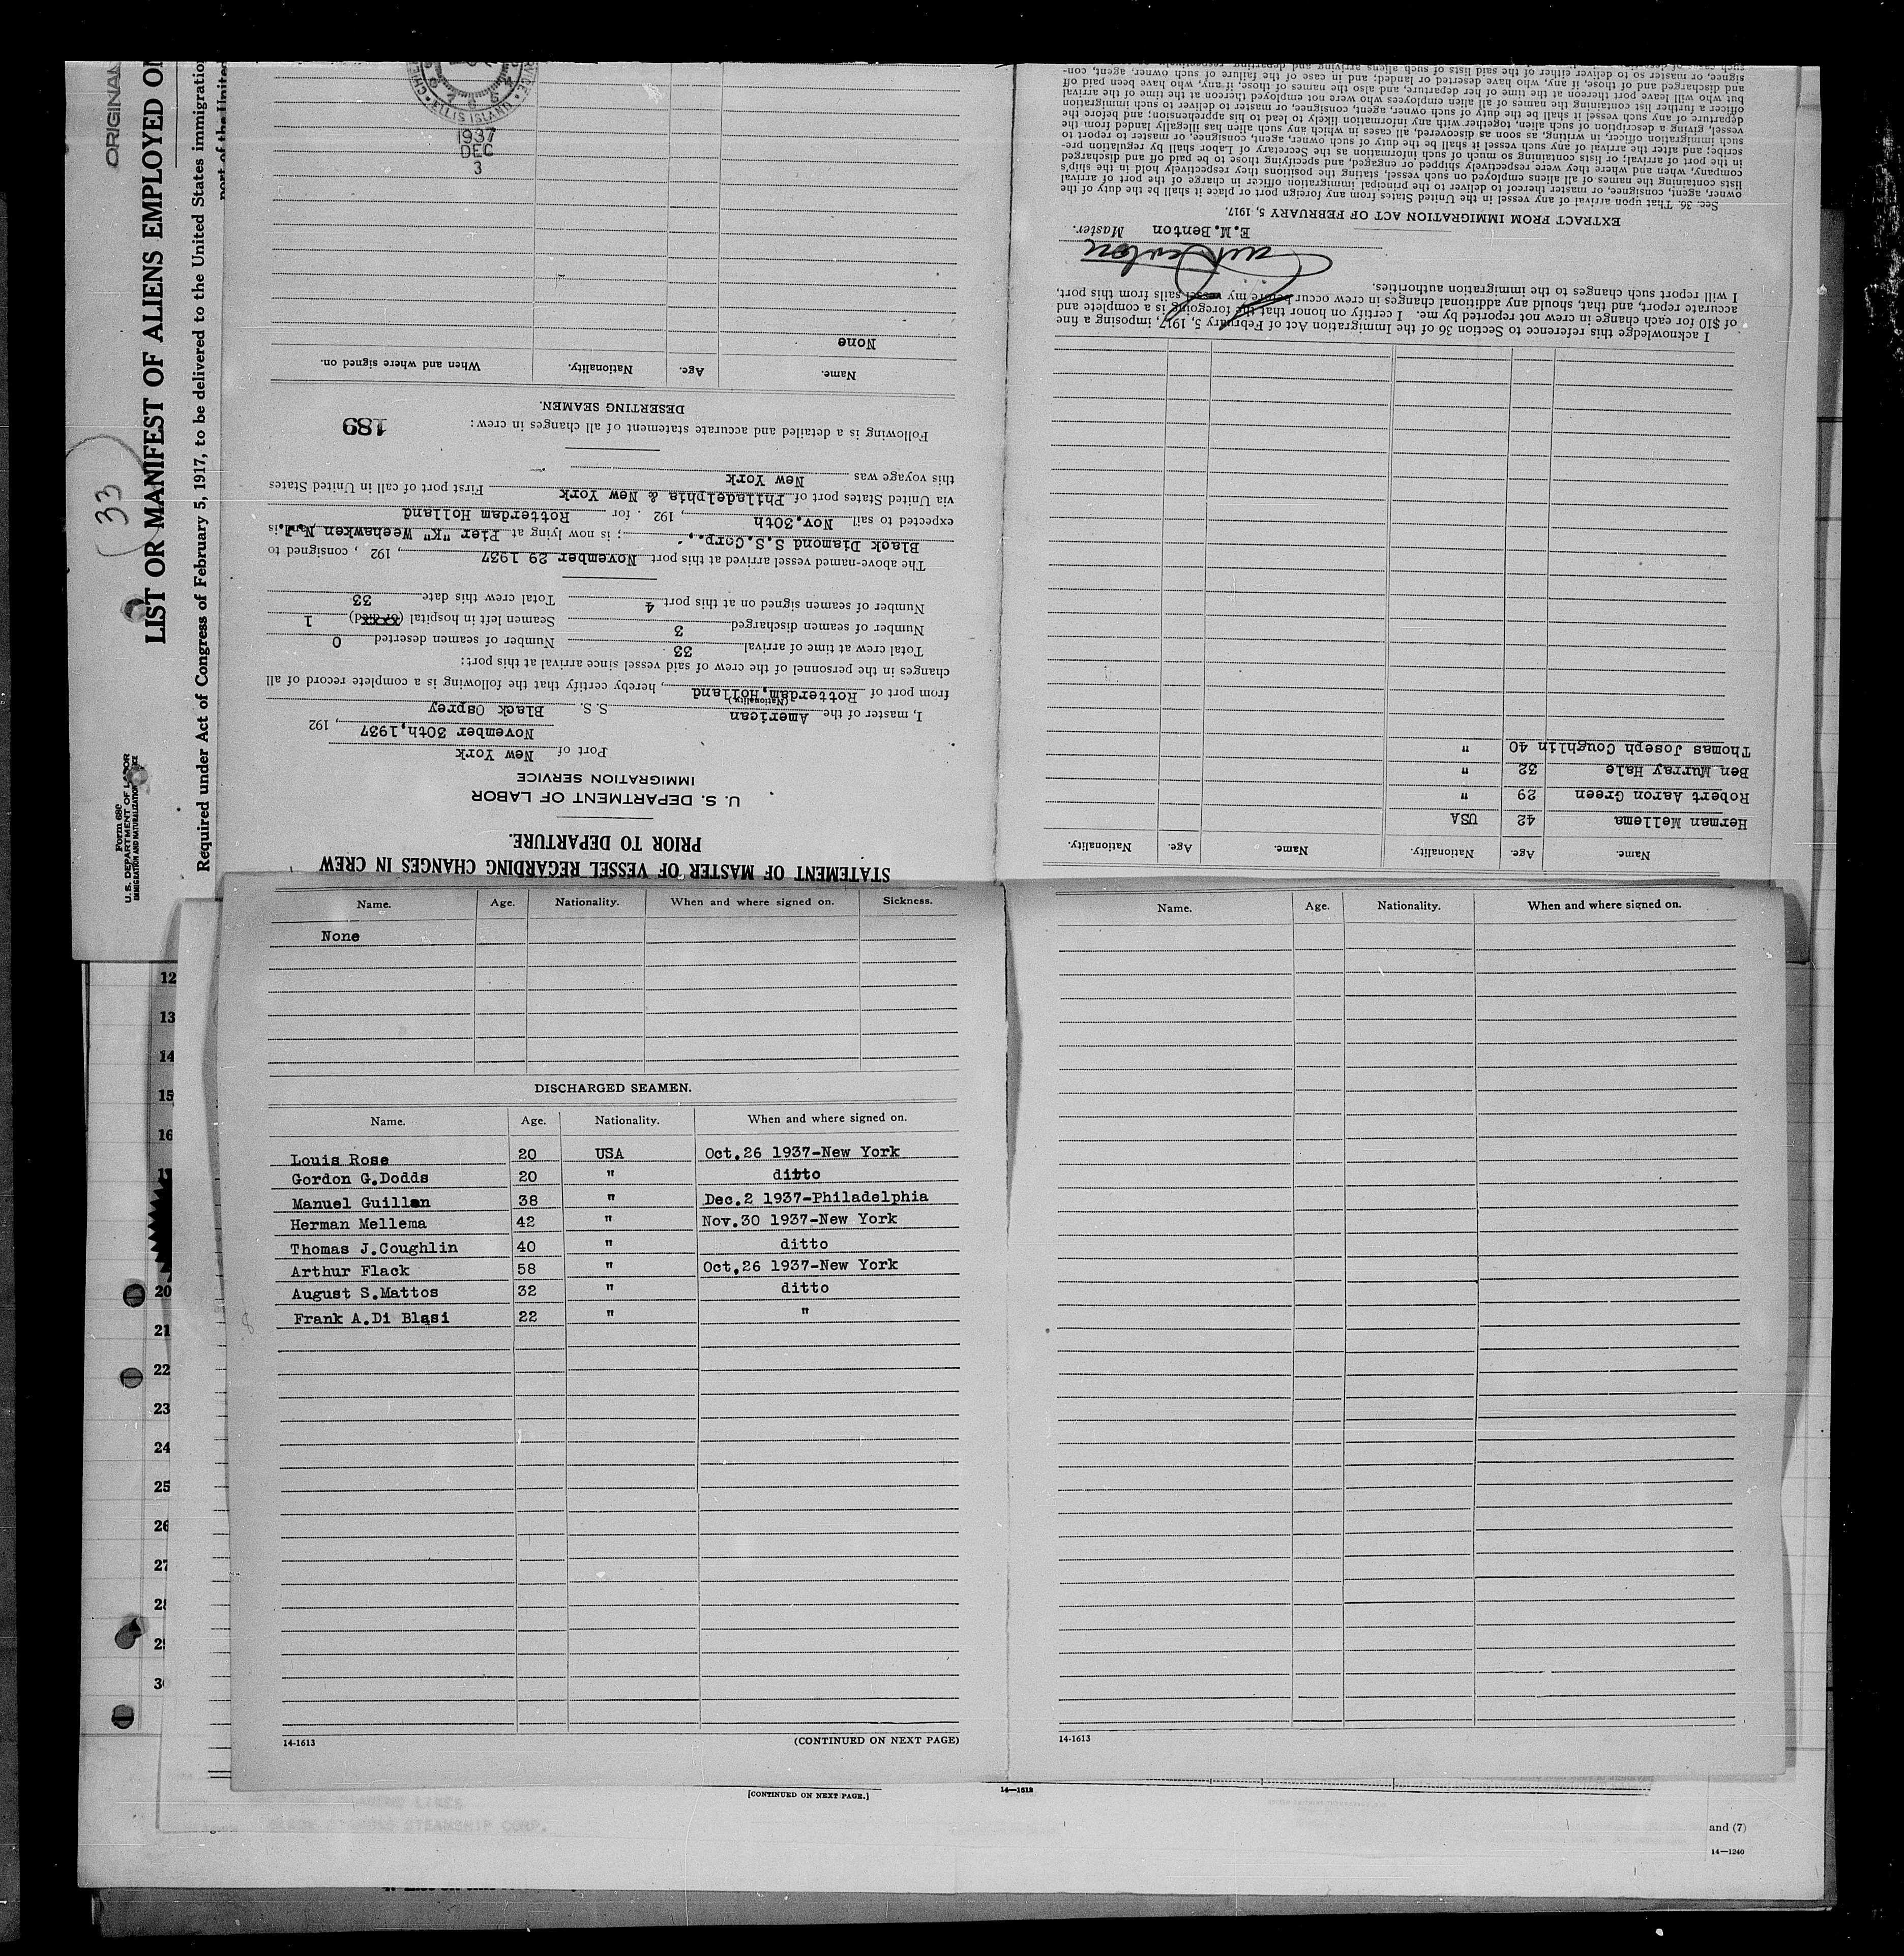 ORIGINAL
LIST OR MANIFEST OF ALIENS EMPLOYED ON
Required under Act of Congress of February 5, 1917, to be delivered to the United States immigration
port of the United
(33)
Form 680
U. S. DEPARTMENT OF LABOR
IMMIGRATION AND NATURALIZATION SERVICE
STATEMENT OF MASTER OF VESSEL REGARDING CHANGES IN CREW
PRIOR TO DEPARTURE.
U. S. DEPARTMENT OF LABOR
IMMIGRATION SERVICE
Port of New York
November 30th,1937, 192
I, master of the American S.S. Black Osprey
(Nationality)
from port of Rotterdam, Holland, hereby certify that the following is a complete record of all
changes in the personnel of the crew of said vessel since arrival at this port:
Total crew at time of arrival 33 Number of seamen deserted 0
Number of seamen discharged 3 Seamen left in hospital (or died) 1
Number of seamen signed on at this port 4 Total crew this date 33
The above-named vessel arrived at this port November 29 1937, 192 , consigned to
Black Diamond S.S.Corp., ; is now lying at Pier "K" Weehawken N.J. is
expected to sail Nov.30th, 192 . for Rotterdam Holland
via United States port of Philadelphia & New York First port of call in United States
this voyage was New York
Following is a detailed and accurate statement of all changes in crew:
189
DESERTING SEAMEN.
Name. Age. Nationality. When and where signed on.
None
ELLIS ISLAND
1937
DEC
3
Name. Age. Nationality. Name. Age. Nationality.
Herman Mellema 42 USA
Robert Aaron Green 29 "
Ben Murray Hale 32 "
Thomas Joseph Coughlin 40 "
I acknowledge this reference to Section 36 of the Immigration Act of February 5, 1917, imposing a fine
of $10 for each change in crew not reported by me. I certify on honor that the foregoing is a complete and
accurate report, and that, should any additional changes in crew occur before my vessel sails from this port,
I will report such changes to the immigration authorities.
E.M.Benton Master.
EXTRACT FROM IMMIGRATION ACT OF FEBRUARY 5, 1917.
Sec. 36. That upon arrival of any vessel in the United States from any foreign port or place it shall be the duty of the
owner, agent, consignee, or master thereof to deliver to the principal immigration officer in charge of the port of arrival
lists containing the names of all aliens employed on such vessel, stating the positions they respectively hold in the ship's
company, when and where they were respectively shipped or engaged, and specifying those to be paid off and discharged
in the port of arrival; or lists containing so much of such information as the Secretary of Labor shall by regulation pre-
scribe; and after the arrival of any such vessel it shall be the duty of such owner, agent, consignee, or master to report to
such immigration officer, in writing, as soon as discovered, all cases in which any such alien has illegally landed from the
vessel, giving a description of such alien, together with any information likely to lead to his apprehension; and before the
departure of any such vessel it shall be the duty of such owner, agent, consignee, or master to deliver to such immigration
officer a further list containing the names of all alien employees who were not employed thereon at the time of the arrival
but who will leave port thereon at the time of her departure, and also the names of those, if any, who have been paid off
and discharged and of those, if any, who have deserted or landed; and in case of the failure of such owner, agent, con-
signee, or master so to deliver either of the said lists of such aliens arriving and departing respectively
Name. Age. Nationality. When and where signed on. Sickness.
None
DISCHARGED SEAMEN.
Name. Age. Nationality. When and where signed on.
Louis Rose 20 USA Oct.26 1937-New York
Gordon G.Dodds 20 " ditto
Manuel Guillen 38 " Dec.2 1937-Philadelphia
Herman Mellema 42 " Nov.30 1937-New York
Thomas J.Coughlin 40 " ditto
Arthur Flack 58 " Oct.26 1937-New York
August S.Mattos 32 " ditto
Frank A.Di Blasi 22 " "
14-1613 (CONTINUED ON NEXT PAGE)
Name. Age. Nationality. When and where signed on.
14-1613
12
13
14
15
16
17
20
21
22
23
24
25
26
27
28
29
30
[CONTINUED ON NEXT PAGE.]
14—1612
STEAMSHIP CORP.
and (7)
14—1240